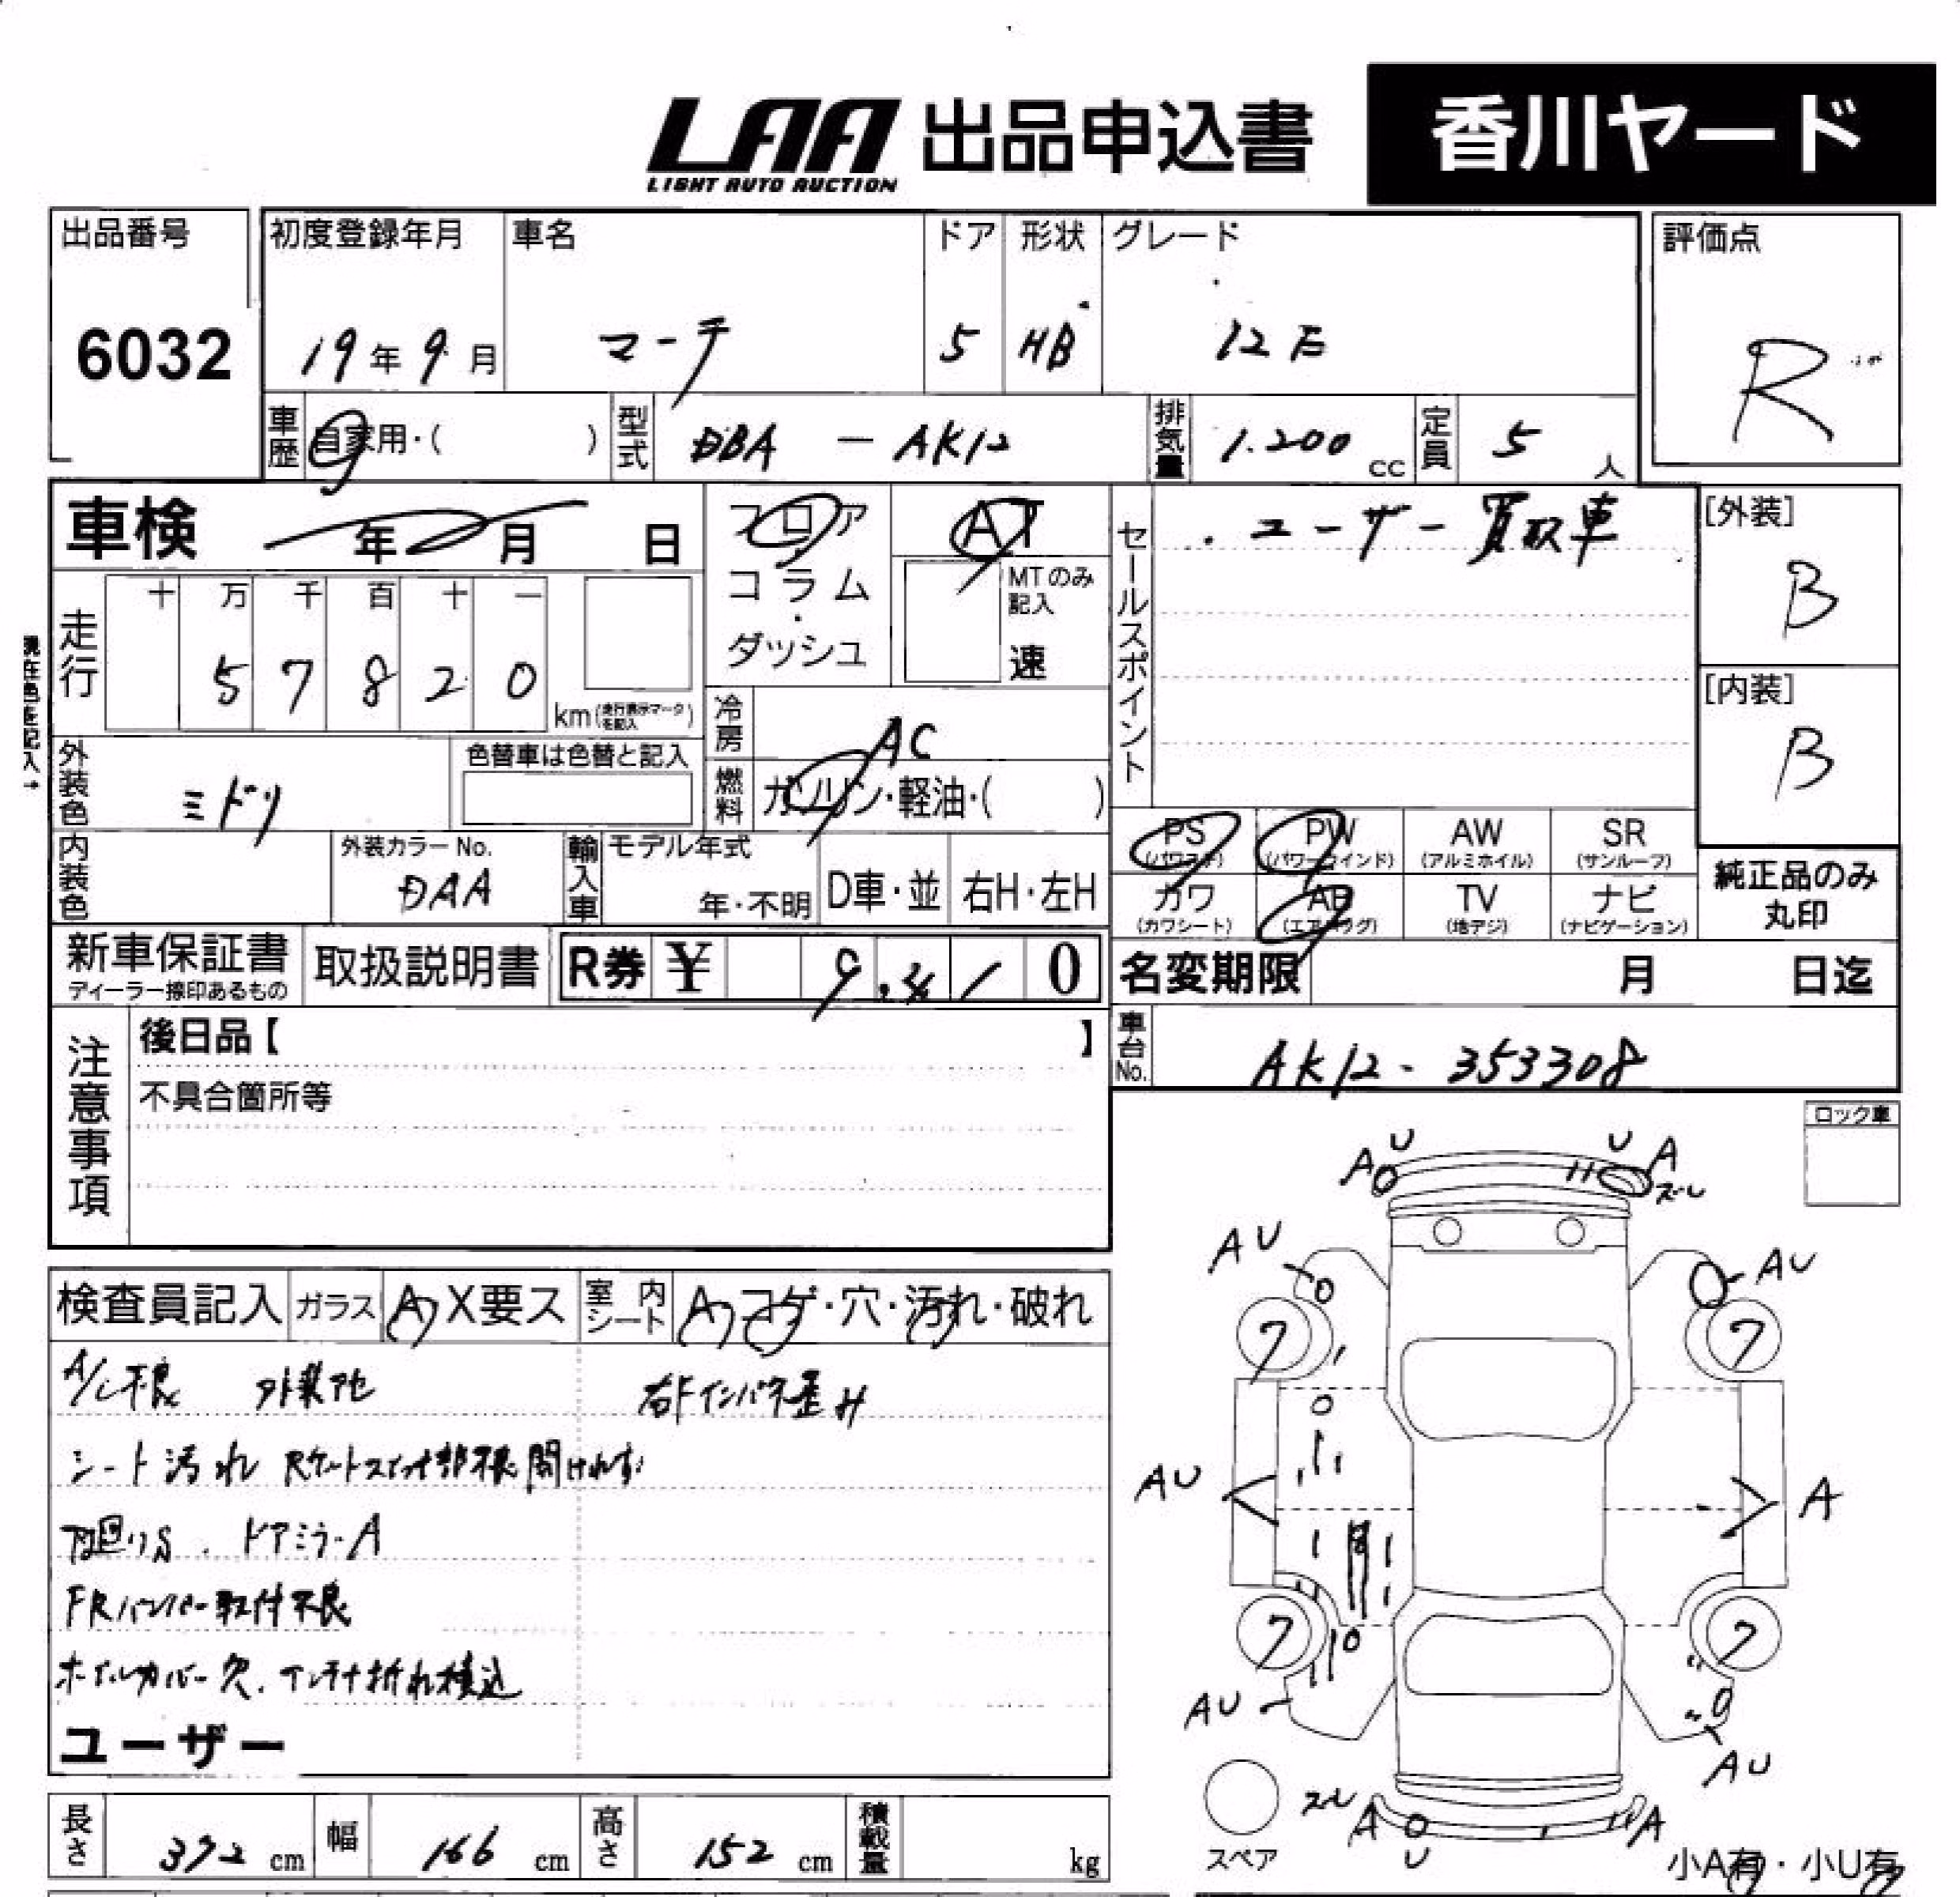 LAA 出品申込書 香川ヤード
LIGHT AUTO AUCTION
出品番号 初度登録年月 車名 ドア 形状 グレード 評価点
6032 19年9月 マーチ 5 HB 12E R
車歴 自家用・( ) 型式 DBA － AK12 排気量 1.200 cc 定員 5 人
車検 年 月 日 フロア AT
コラム
・
ダッシュ
MTのみ記入
速
セールスポイント
・ユーザー買取車
[外装]
B
[内装]
B
現在色を記入→
走行 十 万 千 百 十 一
5 7 8 2 0 km(走行表示マークを記入)
冷房 AC
外装色 ミドリ 色替車は色替と記入
燃料 ガソリン・軽油・( )
内装色 外装カラーNo. DAA 輸入車 モデル年式 年・不明 D車・並 右H・左H
PS (パワステ) PW (パワーウインド) AW (アルミホイル) SR (サンルーフ)
カワ (カワシート) AB (エアバッグ) TV (地デジ) ナビ (ナビゲーション)
純正品のみ丸印
新車保証書 ディーラー捺印あるもの 取扱説明書 R券 ¥ 0
名変期限 月 日迄
注意事項 後日品【 】
不具合箇所等
車台No. AK12-353308
ロック車
検査員記入 ガラス A・X要ス 室内シート A・コゲ・穴・汚れ・破れ
A/C不良 外装色 右Fインパネ歪み
シート汚れ Rゲートスイッチ部不良開けれず
下廻りS . ドアミラーA
FRバンパー取付不良
ホイルカバー欠. アンテナ折れ積込
ユーザー
U U
A A
スレ
AU AU
7 7
AU A
7 7
AU AU
スレ A A
U
スペア
小A有・小U有
長さ 372 cm 幅 166 cm 高さ 152 cm 積載量 kg